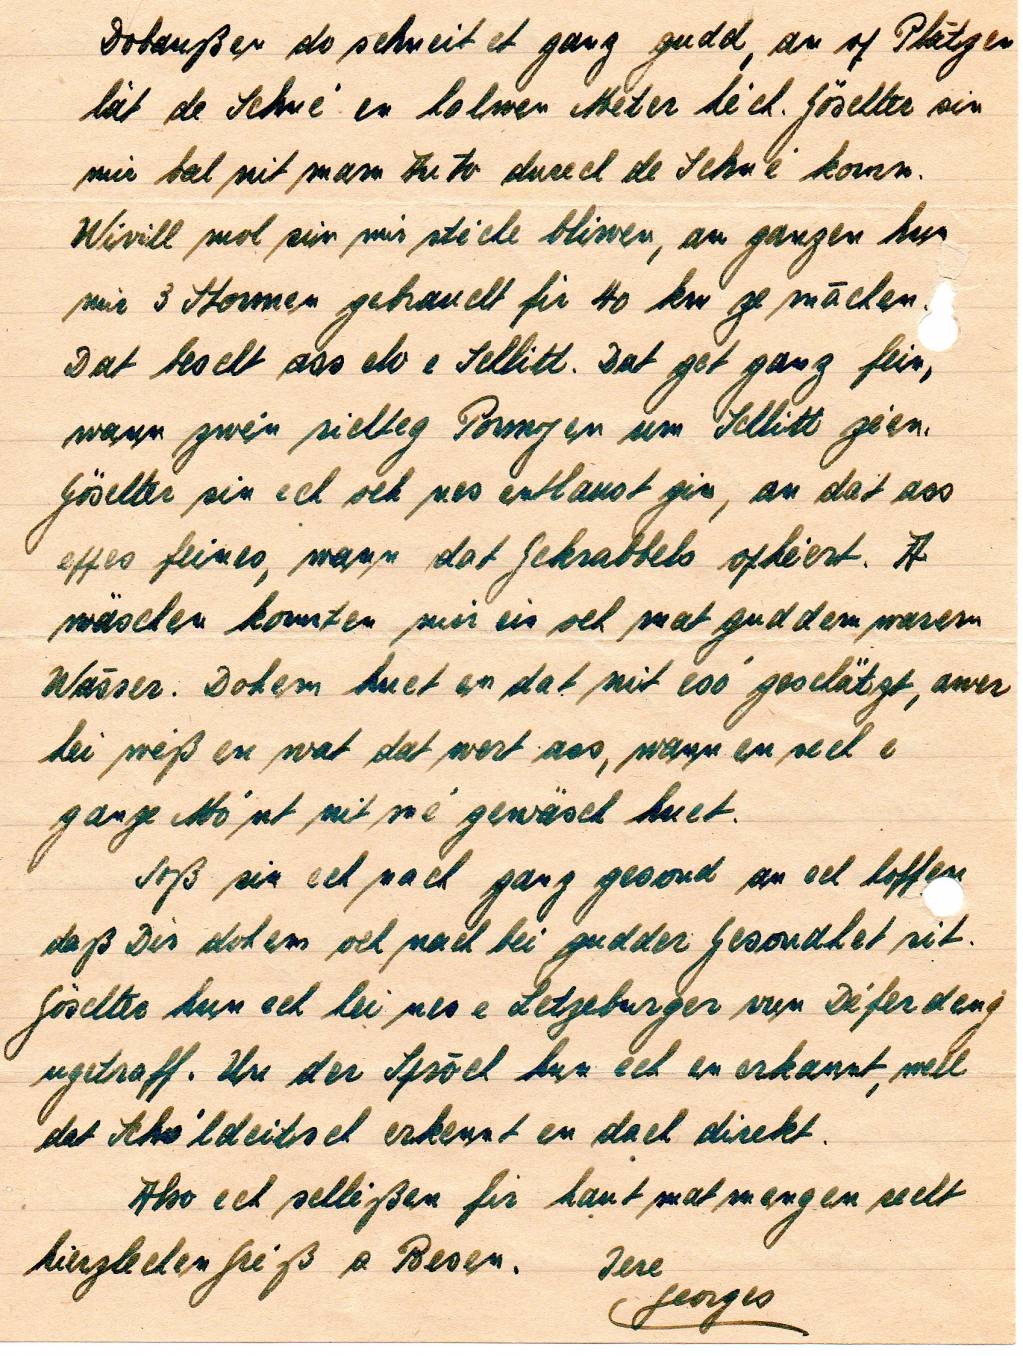 Dobaußen do schneit et ganz gudd, an of Plätzen
lät de Schné en halwen Méter héch. Göschter sin
mir bal nit mam Auto durech de Schné komm.
Wivill mol sin mir stéche bliwen, am ganzen hun
mir 3 Stonnen gebraucht fir 40 km ze mächen.
Dat bescht ass elo e Schlitt. Dat get ganz fein,
wann zwén richteg Ponnyen um Schlitt zéen.
Göschter sin ech och nes entlaust gin, an dat ass
effes feines, wann dat Gekrabbels ophéert. A
wäschen konnten mir eis och mat guddem warem
Wässer. Dohem huet en dat nit esó geschätzt, awer
hei weiß en wat dat wert ass, wann en sech e
ganze Mónt nit mé gewäsch huet.
Soß sin ech nach ganz gesond an ech hoffen
daß Dir dohem och nach bei gudder Gesondhet sit.
Göschter hun ech hei nes e Letzeburger vun Déferdeng
ugetraff. Un der Spröch hun ech en erkannt, well
dat Schóldeitsch erkennt en dach direkt.
Also ech schléißen fir haut mat mengen recht
hierzlechen Gréiß a Besen. Iere
Georges